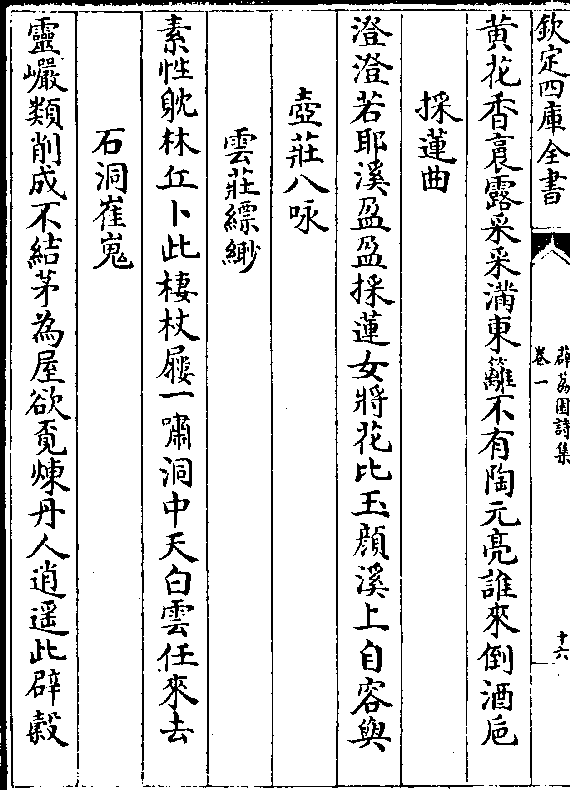 欽定四庫全書
薜荔園詩集
卷一
十六
黃花香裛露采采滿東籬不有陶元亮誰來倒酒巵
採蓮曲
澄澄若耶溪盈盈採蓮女將花比玉顔溪上自容與
壺莊八咏
雲莊縹緲
素性躭林丘卜此棲杖屨一嘯洞中天白雲任來去
石洞崔嵬
靈巗類削成不結茅為屋欲覔煉丹人逍遥此辟榖